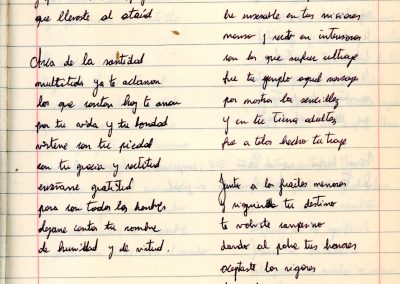 que llevaste al ataúd
Obra de la santidad
multitudes ya te aclaman
los que cantan hoy te aman
por tu vida y tu bondad
vísteme con tu piedad
con tu gracia y rectitud
enséñame gratitud
para con todos los hombres
dejame cantar tu nombre
de humildad y de virtud.
fue incansable en tus misiones
manso y recto en
con los que sufren ultraje
fue tu ejemplo aquel mensaje
por mostrar la sencillez
y en tu tierna adultez
fue a todos hecho tu traje
Junto a los frailes menores
y siguiendo tu destino
te volviste campesino
dando al pobre tus honores
aceptaste los rigores